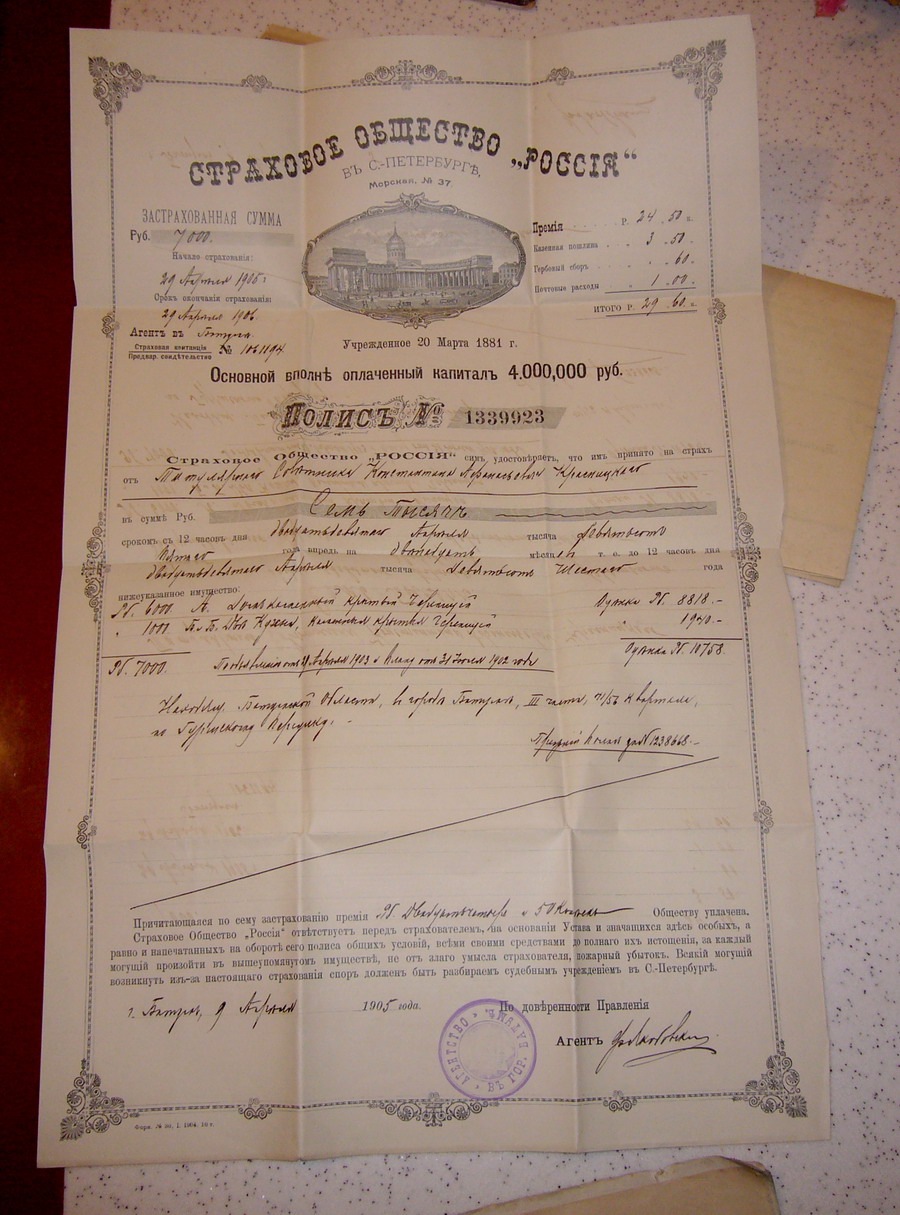 СТРАХОВОЕ ОБЩЕСТВО „РОССІЯ“
ВЪ С.-ПЕТЕРБУРГѢ,
Морская, № 37.
ЗАСТРАХОВАННАЯ СУММА
Руб. 7000.
Начало страхованія:
29 Апрѣля 1905 г.
Срокъ окончанія страхованія:
29 Апрѣля 1906
Агентъ въ Батумѣ
Страховая квитанція
Предвар. свидѣтельство №
Премія Р. 24.50 к.
Казенная пошлина 3.50.
Гербовый сборъ .60.
Почтовые расходы 1.00.
ИТОГО Р. 29.60.
Учрежденное 20 Марта 1881 г.
Основной вполнѣ оплаченный капиталъ 4.000,000 руб.
Полисъ № 1339923
Страховое Общество „РОССІЯ“ симъ удостовѣряетъ, что имъ принято на страхъ
отъ Титулярнаго Совѣтника Константина Афанасьевича Красницкаго
въ суммѣ Руб. Семь Тысячъ
срокомъ съ 12 часовъ дня Двадцатьдевятаго Апрѣля тысяча Девятьсотъ
Пятаго года впредь на двѣнадцать мѣсяцевъ т. е. до 12 часовъ дня
Двадцатьдевятаго Апрѣля тысяча Девятьсотъ Шестаго года
нижеуказанное имущество:
Рб. 6000. А. крытый Черепицей Оцѣнка Рб. 8818.-
" 1000. крытыя Черепицей 1940.-
Рб. 7000. Апрѣля 1903 и плану отъ 31 Іюля 1902 года Оцѣнка Рб. 10758.
Батумской Области, въ городѣ Батумѣ, III части, кварталѣ,
по переулку.
полисъ за № 1238668.-
Причитающаяся по сему застрахованію премія Рб. Двадцатьчетыре и 50 Копѣекъ Обществу уплачена.
Страховое Общество „Россія“ отвѣтствуетъ передъ страхователемъ, на основаніи Устава и значащихся здѣсь особыхъ, а
равно и напечатанныхъ на оборотѣ сего полиса общихъ условій, всѣми своими средствами до полнаго ихъ истощенія, за каждый
могущій произойти въ вышеупомянутомъ имуществѣ, не отъ злаго умысла страхователя, пожарный убытокъ. Всякій могущій
возникнуть изъ-за настоящаго страхованія споръ долженъ быть разбираемъ судебнымъ учрежденіемъ въ С.-Петербургѣ.
г. Батумъ, 9 Апрѣля 1905 года.
По довѣренности Правленія
Агентъ
АГЕНТСТВО ВЪ ГОР. БАТУМѢ
Форм. № 36, I. 1904. 10 г.